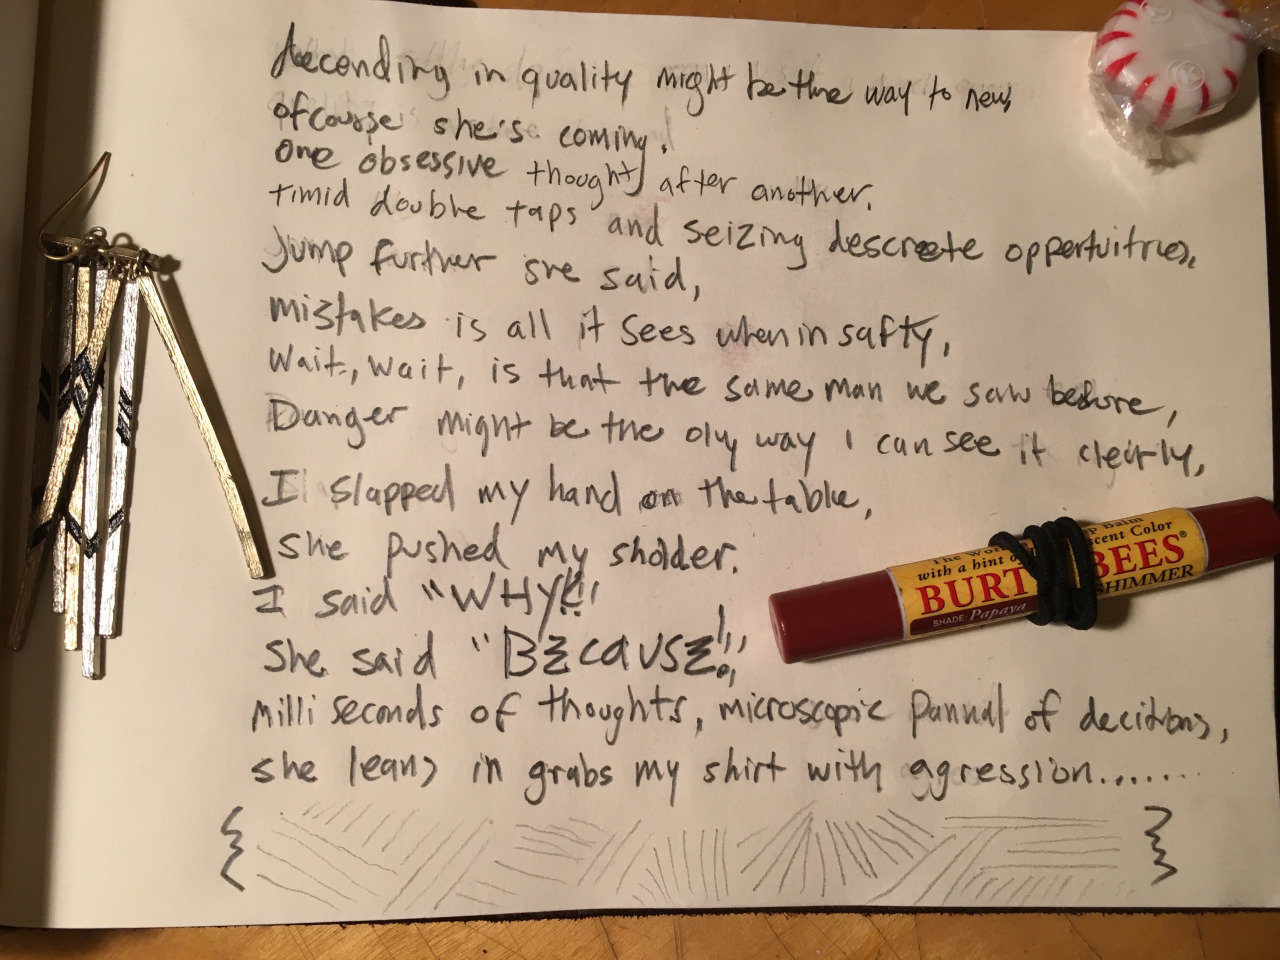 decending in quality might be the way to new,
ofcourse she's coming,
one obsessive thought after another.
timid double taps and seizing descreete oppertuitries,
Jump further she said,
mistakes is all it sees when in safty,
Wait, wait, is that the same man we saw before,
Danger might be the oly way I can see it clearly,
I slapped my hand on the table,
She pushed my sholder.
I said "WHY!!"
She said "BECAUSE!!"
milli seconds of thoughts, microscopic pannal of decitions,
she leans in grabs my shirt with agression.......
with a hint of
scent Color
BURT BEES®
SHIMMER
SHADE: Papaya